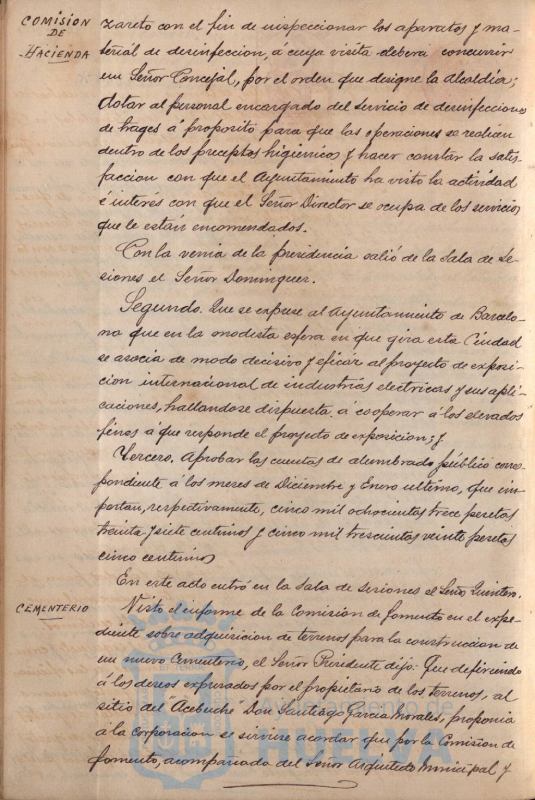 COMISION
DE
HACIENDA
zareto con el fin de inspeccionar los aparatos y ma-
terial de desinfeccion, á cuya visita deberá concurrir
un Señor Concejal, por el orden que designe la alcaldia;
dotar al personal encargado del servicio de desinfecciones
de trages á proposito para que las operaciones se realicen
dentro de los preceptos higienicos y hacer constar la satis-
faccion con que el Ayuntamiento ha visto la actividad
é interés con que el Señor Director se ocupa de los servicios
que le están encomendados.
Con la venia de la presidencia salió de la Sala de Se-
siones el Señor Dominguez.
Segundo. Que se exprese al Ayuntamiento de Barcelo-
na que en la modesta esfera en que gira esta Ciudad
se asocia de modo decisivo y eficáz al proyecto de exposi-
cion internacional de industrias electricas y sus apli-
caciones, hallandose dispuesta á cooperar á los elevados
fines á que responde el proyecto de exposicion; y
Tercero. Aprobar las cuentas de alumbrado público corres-
pondiente á los meses de Diciembre y Enero ultimo, que im-
portan, respectivamente, cinco mil ochocientas trece pesetas
treinta y siete centimos y cinco mil trescientas veinte pesetas
cinco centimos
En este acto entró en la Sala de sesiones el Señor Quintero.
CEMENTERIO
Visto el informe de la Comision de fomento en el expe-
diente sobre adquisicion de terrenos para la construccion de
un nuevo Cementerio, el Señor Presidente dijo: Que defiriendo
á los deseos expresados por el propietario de los terrenos, al
sitio del "Acebuche" Don Santiago Garcia Morales, proponia
á la corporacion se sirviese acordar que por la Comision de
fomento, acompañada del Señor Arquitecto Municipal y
Ayuntamiento de
HUELVA